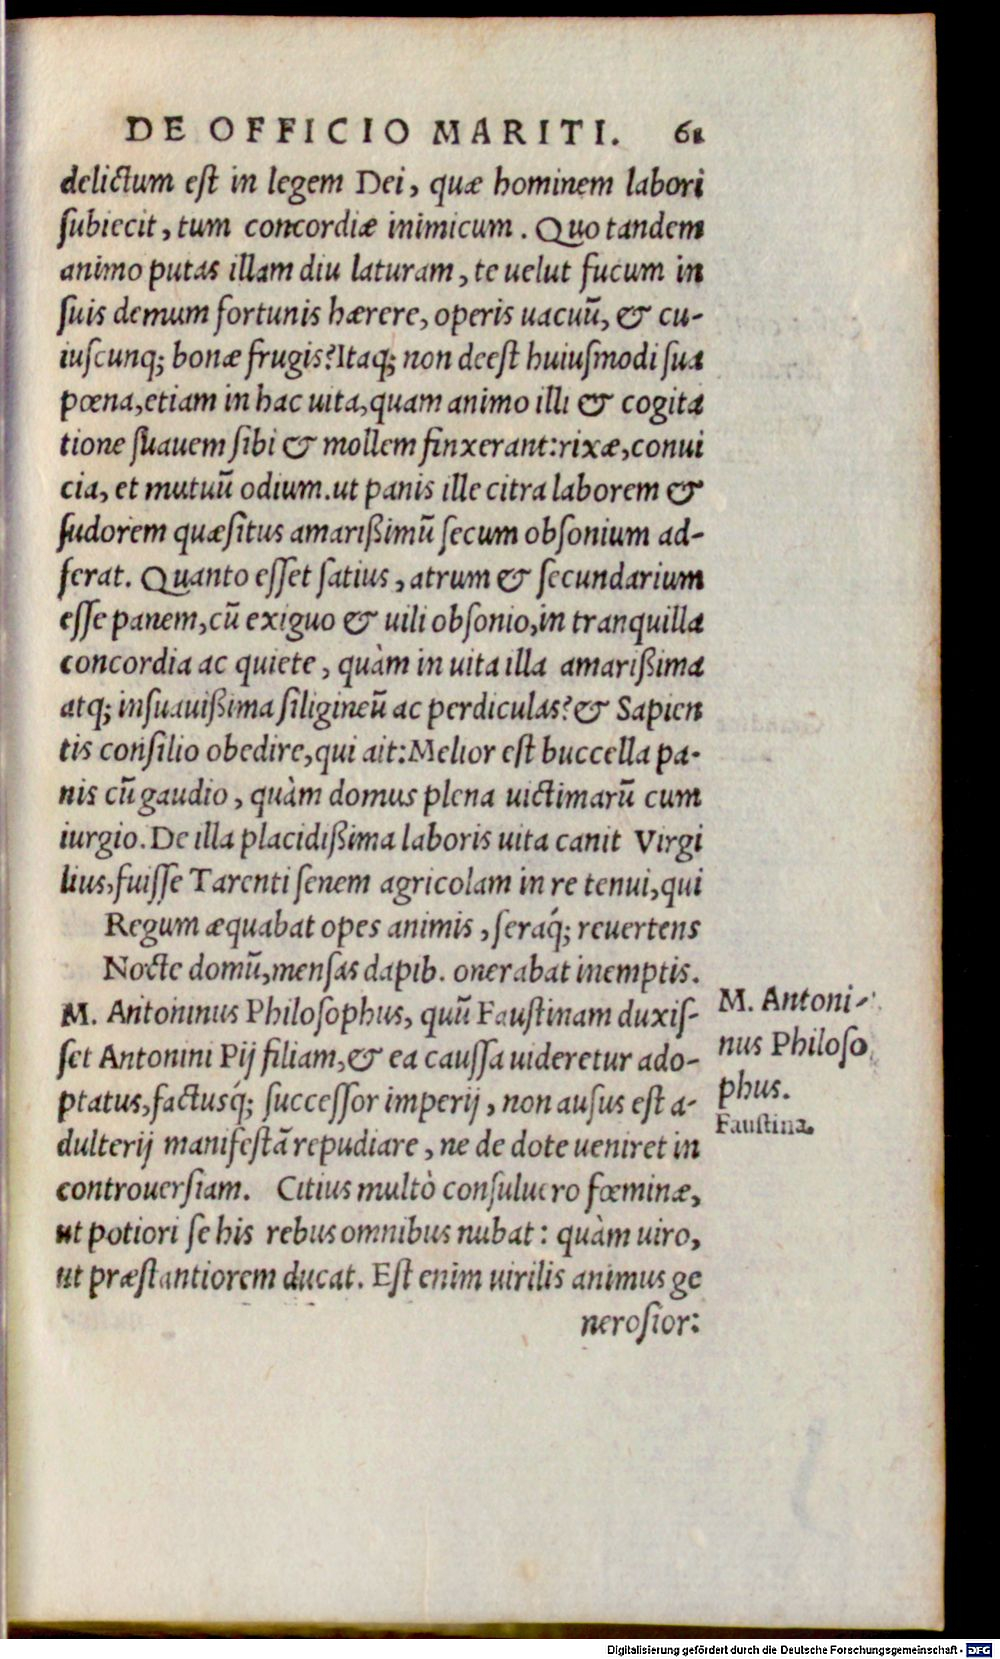 DE OFFICIO MARITI. 61
delictum est in legem Dei, quæ hominem labori
subiecit, tum concordiæ inimicum. Quo tandem
animo putas illam diu laturam, te uelut fucum in
suis demum fortunis hærere, operis uacuũ, & cu-
iuscunq; bonæ frugis? Itaq; non deest huiusmodi sua
pœna, etiam in hac uita, quam animo illi & cogita
tione suauem sibi & mollem finxerant: rixæ, conui
cia, et mutuũ odium. ut panis ille citra laborem &
sudorem quæsitus amarißimũ secum obsonium ad-
ferat. Quanto esset satius, atrum & secundarium
esse panem, cũ exiguo & uili obsonio, in tranquilla
concordia ac quiete, quàm in uita illa amarißima
atq; insuauißima siligineũ ac perdiculas? & Sapien
tis consilio obedire, qui ait: Melior est buccella pa-
nis cũ gaudio, quàm domus plena uictimarũ cum
iurgio. De illa placidißima laboris uita canit Virgi
lius, fuisse Tarenti senem agricolam in re tenui, qui
Regum æquabat opes animis, seraq́; reuertens
Nocte domũ, mensas dapib. onerabat inemptis.
M. Antoninus Philosophus, quũ Faustinam duxis-
set Antonini Pij filiam, & ea caussa uideretur ado-
ptatus, factusq́; successor imperij, non ausus est a-
dulterij manifestã repudiare, ne de dote ueniret in
controuersiam. Citius multò consuluero fœminæ,
ut potiori se his rebus omnibus nubat: quàm uiro,
ut præstantiorem ducat. Est enim uirilis animus ge
nerosior:
M. Antoni-
nus Philoso
phus.
Faustina.
Digitalisierung gefördert durch die Deutsche Forschungsgemeinschaft - DFG